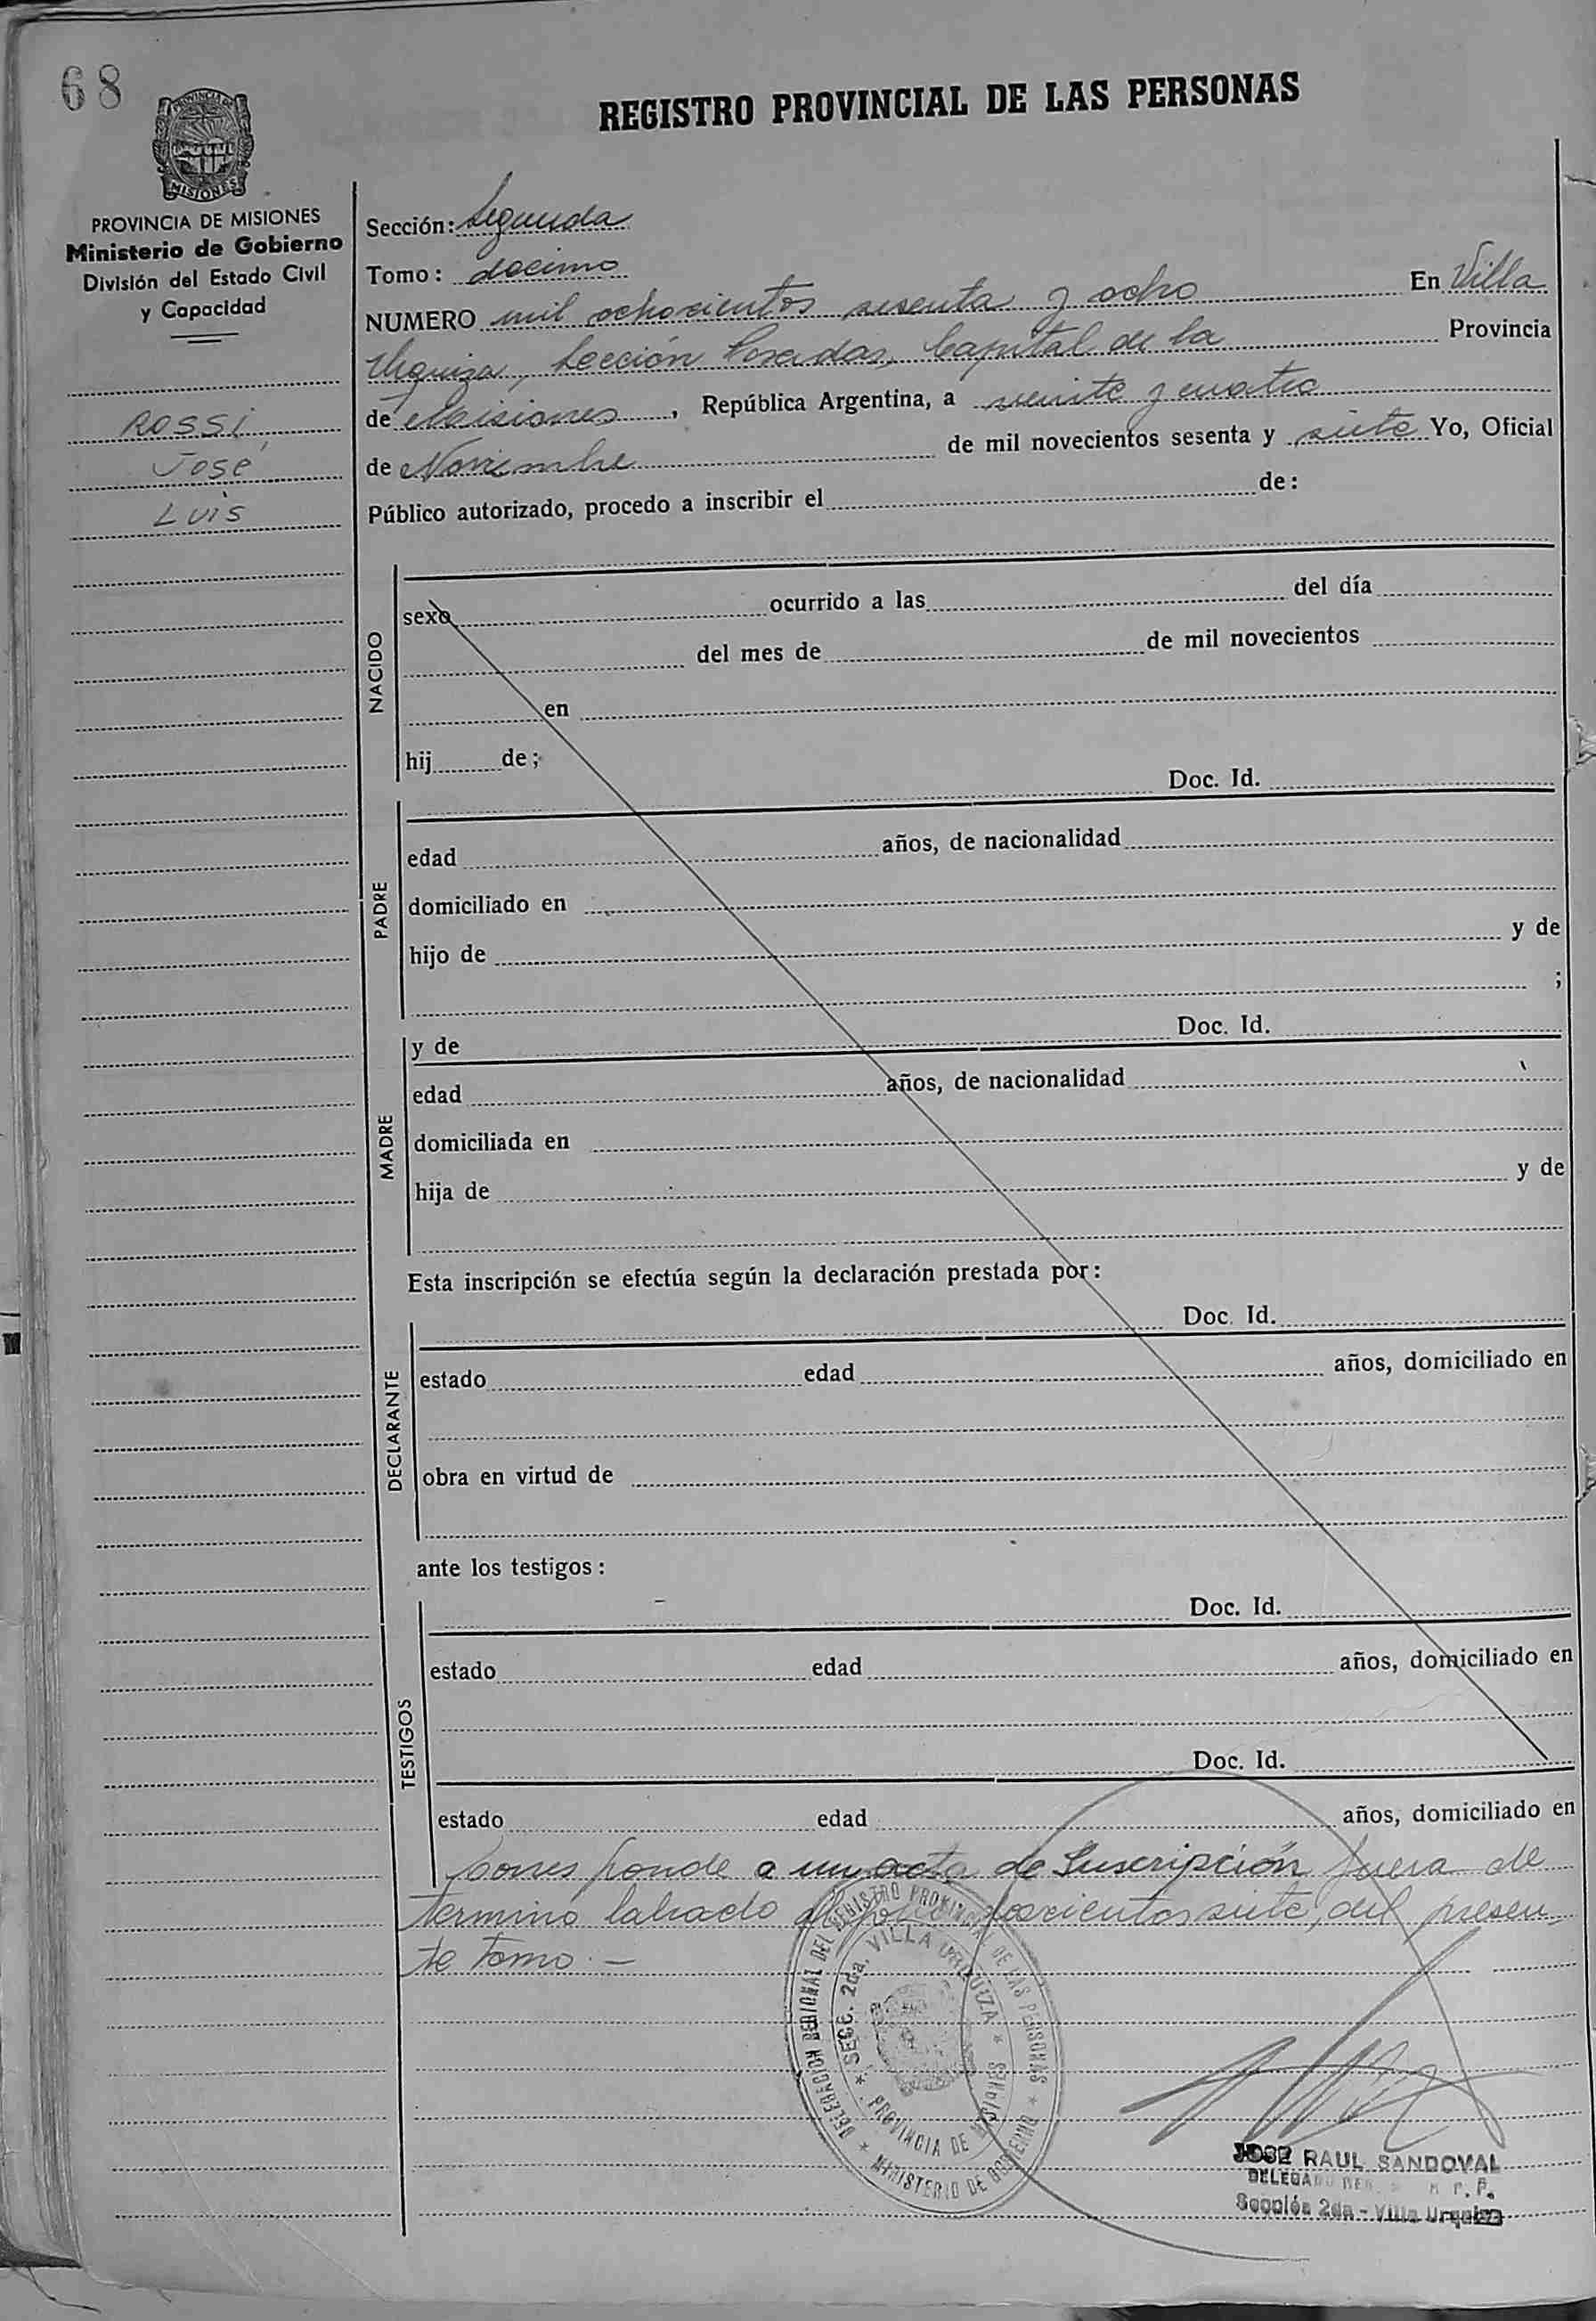 68
REGISTRO PROVINCIAL DE LAS PERSONAS
PROVINCIA DE
MISIONES
PROVINCIA DE MISIONES
Ministerio de Gobierno
División del Estado Civil
y Capacidad
ROSSI,
José
Luis
Sección: Segunda
Tomo: decimo
NUMERO mil ochocientos sesenta y ocho En Villa
Urquiza, Sección Posadas, Capital de la Provincia
de Misiones, República Argentina, a veinte y cuatro
de Noviembre de mil novecientos sesenta y siete Yo, Oficial
Público autorizado, procedo a inscribir el de:
NACIDO
sexo ocurrido a las del día
del mes de de mil novecientos
en
hij de;
Doc. Id.
PADRE
edad años, de nacionalidad
domiciliado en
hijo de y de
;
MADRE
y de Doc. Id.
edad años, de nacionalidad
domiciliada en
hija de y de
Esta inscripción se efectúa según la declaración prestada por:
DECLARANTE
Doc. Id.
estado edad años, domiciliado en
obra en virtud de
ante los testigos:
TESTIGOS
Doc. Id.
estado edad años, domiciliado en
Doc. Id.
estado edad años, domiciliado en
Corresponde a un acta de Inscripción fuera de
termino labrado doscientos siete, del presen-
te tomo.—
DELEGACION REGIONAL DEL REGISTRO PROVINCIAL DE LAS PERSONAS * MINISTERIO DE GOBIERNO *
* SECC. 2da. VILLA URQUIZA * PROVINCIA DE MISIONES
JOSE RAUL SANDOVAL
DELEGADO REG. R. P. P.
Sección 2da - Villa Urquiza